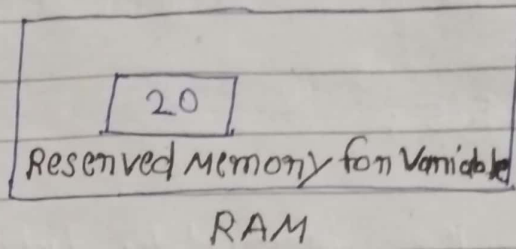 20
Reserved Memory for Variable
RAM